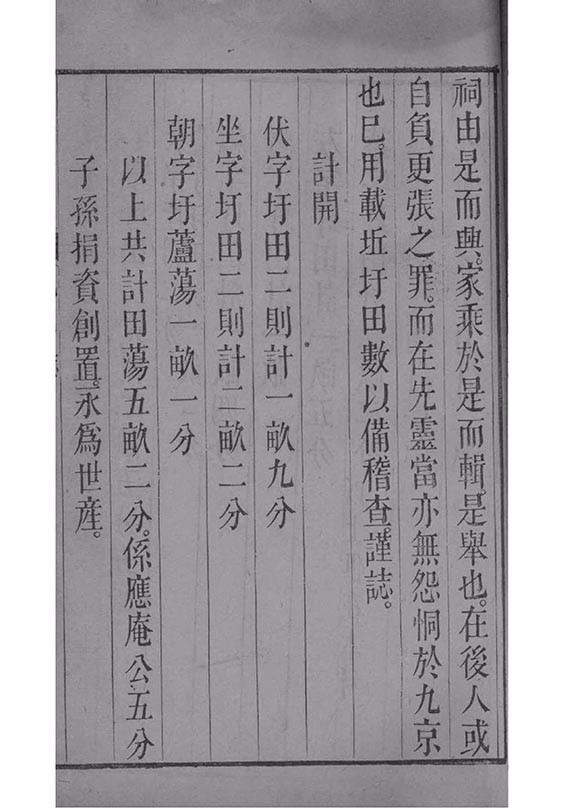 祠由是而興。家乘於是而輯。是舉也。在後人或
自負更張之罪。而在先靈當亦無怨恫於九京
也已。用載坵圩田數以備稽查。謹誌。
計開
伏字圩田二則計一畝九分
坐字圩田二則計二畝二分
朝字圩蘆蕩一畝一分
以上共計田蕩五畝二分。係應庵公五分
子孫捐資創置。永爲世産。